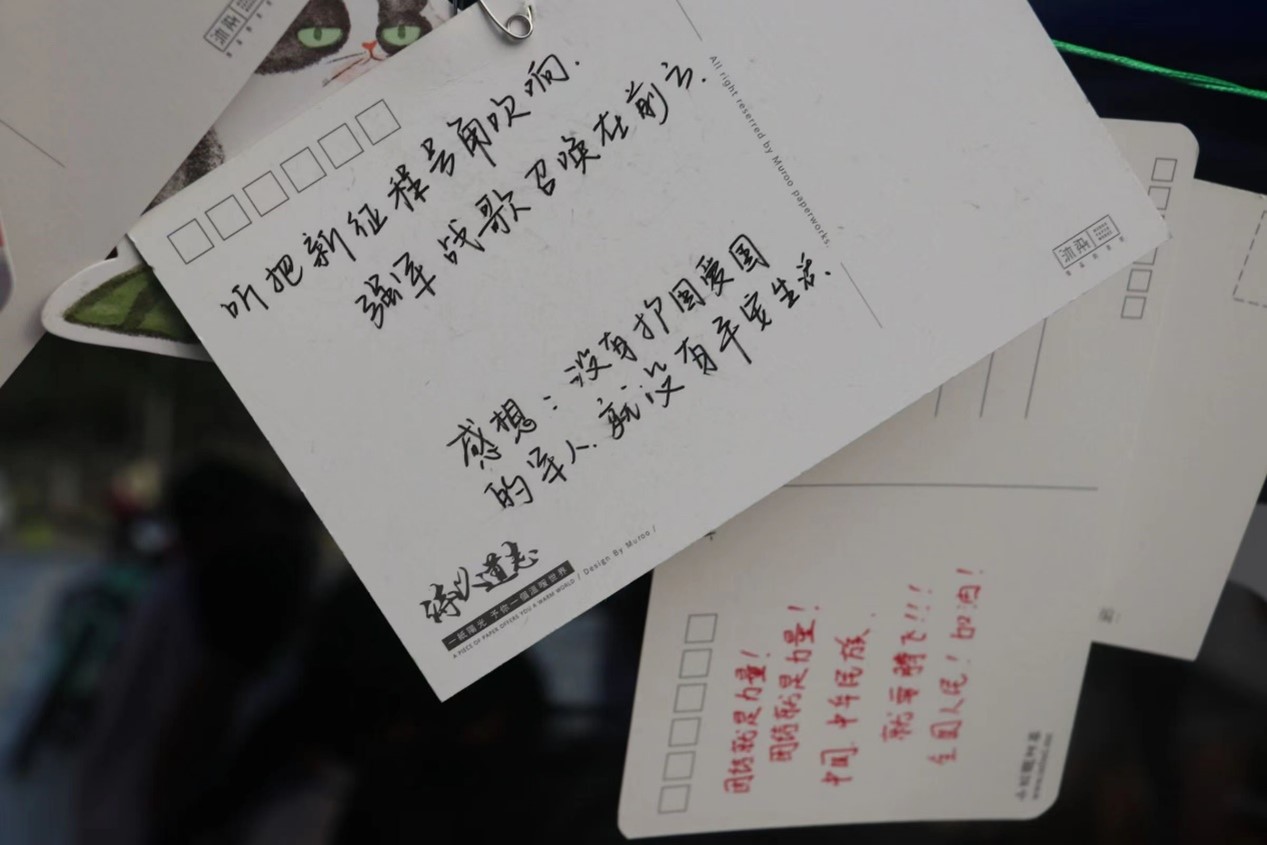 听把新征程号角吹响.
强军战歌召唤在前方.
感想：没有护国爱国
的军人.就没有平实生活.
一紙陽光 予你一個溫暖世界 / Design By Muroo /
A PIECE OF PAPER OFFERS YOU A WARM WORLD
All right reserred by Muroo paperworks.
团结就是力量!
团结就是力量!
中国.中华民族.
就要腾飞!!!
全国人民!加油!